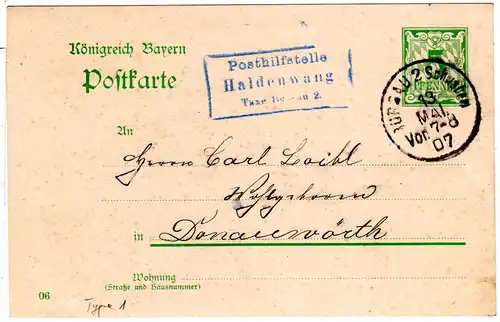 Königreich Bayern
Postkarte
Posthilfstelle
Haldenwang
Taxe Burgau 2.
5
PFENNIG
BURGAU 2 Schwaben
13
MAI
Vor. 7-8
07
An
Herrn Carl Loibl
Wohlgeboren
in Donauwörth
Wohnung
(Straße und Hausnummer)
06
Type 1